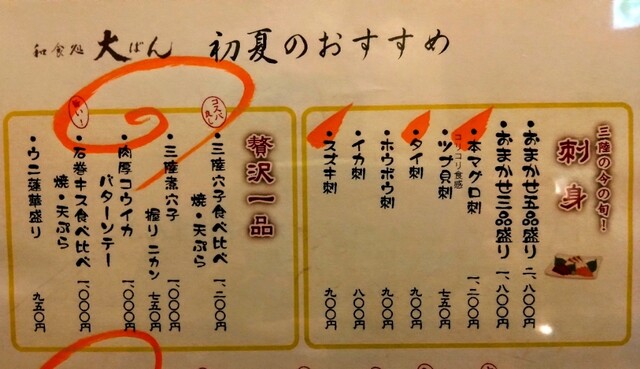 和食処 大ばん 初夏のおすすめ
三陸の今の旬!
刺身
・おまかせ五品盛り 二、八〇〇円
・おまかせ三品盛り 一、八〇〇円
・本マグロ刺 一、二〇〇円
コリコリ食感
・ツブ貝刺 七五〇円
・タイ刺 九〇〇円
・ホウボウ刺 九〇〇円
・イカ刺 八〇〇円
・スズキ刺 九〇〇円
贅沢一品
コスパ良し
・三陸穴子食べ比べ
焼・天ぷら 一、二〇〇円
・三陸煮穴子 一、〇〇〇円
握り二カン 七五〇円
・肉厚コウイカ
バターソテー 一、〇〇〇円
旨い!
・石巻キス食べ比べ
焼・天ぷら 一、〇〇〇円
・ウニ蓮華盛り 九五〇円